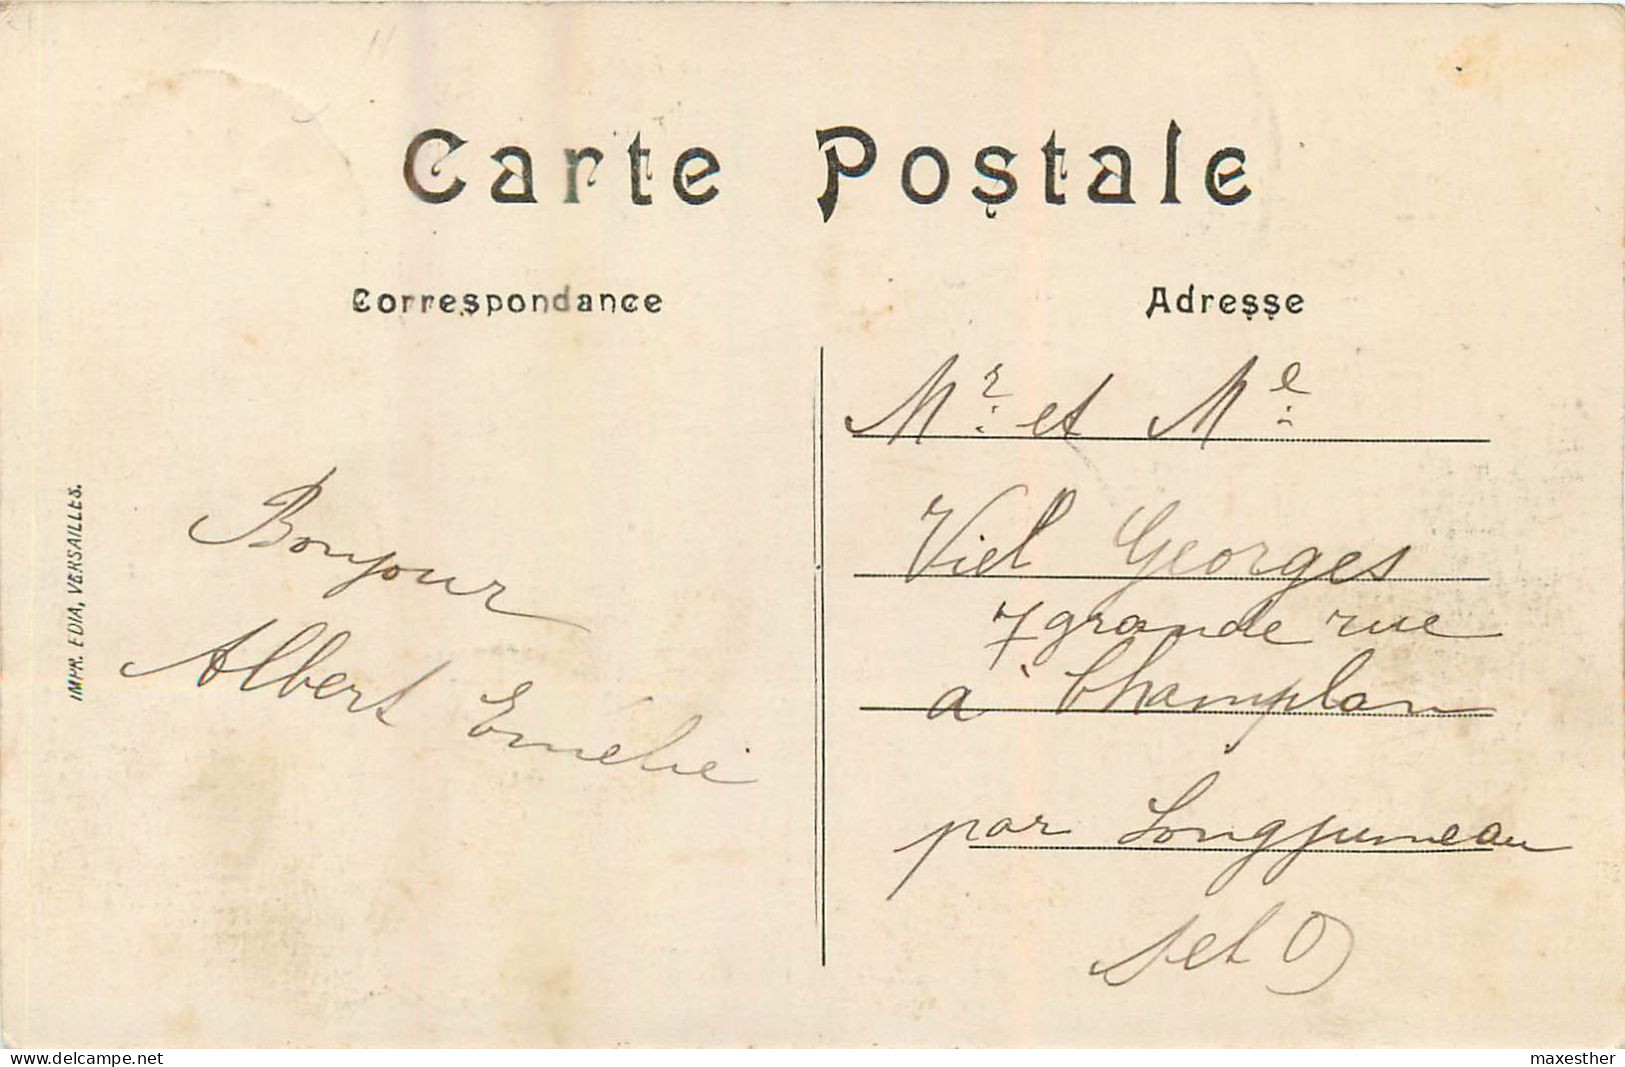 Carte Postale
Correspondance
Adresse
Mr. et Me.
Viel Georges
7 grande rue
à Champlan
par Longjumeau
S et O
Bonjour
Albert Emélie
IMPR. EDIA, VERSAILLES.
delcampe.net
maxesther